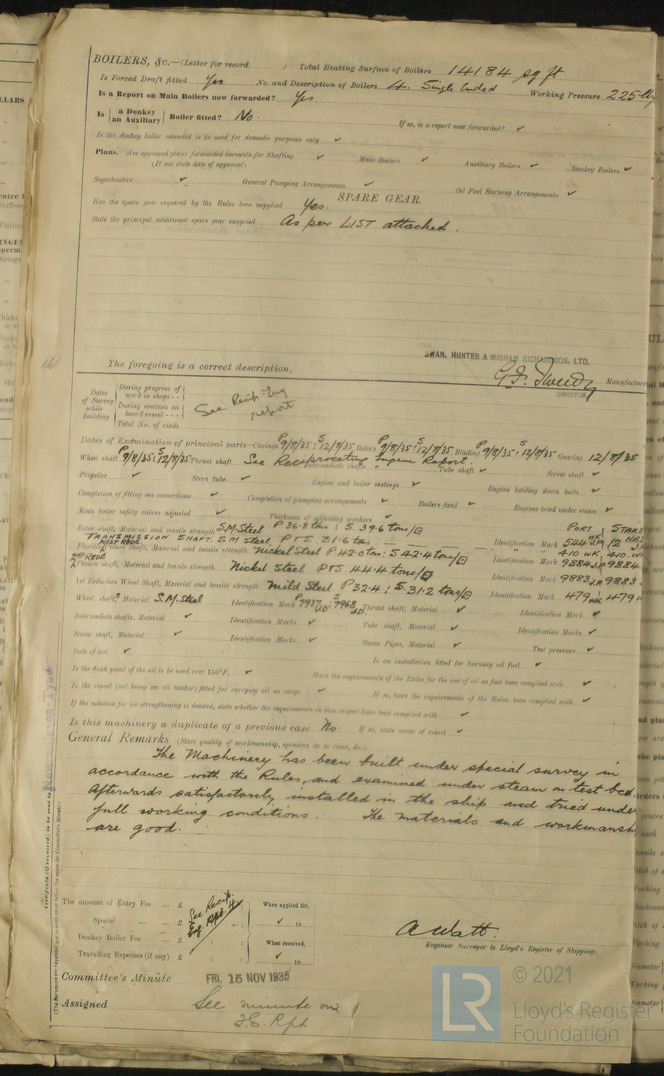 BOILERS, &c.—(Letter for record ) Total Heating Surface of Boilers 14184 sq ft
Is Forced Draft fitted Yes No. and Description of Boilers 4. Single Ended Working Pressure 225
Is a Report on Main Boilers now forwarded? Yes
Is { a Donkey / an Auxiliary } Boiler fitted? No. If so, is a report now forwarded? ✓
Is the donkey boiler intended to be used for domestic purposes only ✓
Plans. Are approved plans forwarded herewith for Shafting ✓ Main Boilers ✓ Auxiliary Boilers ✓ Donkey Boilers ✓
(If not state date of approval)
Superheaters ✓ General Pumping Arrangements ✓ Oil Fuel Burning Arrangements ✓
SPARE GEAR.
Has the spare gear required by the Rules been supplied Yes.
State the principal additional spare gear supplied As per LIST attached.
SWAN, HUNTER & WIGHAM RICHARDSON, LTD.
The foregoing is a correct description,
Manufacturer
DIRECTOR
Dates of Survey while building
During progress of work in shops - -
During erection on board vessel - - -
Total No. of visits
See Recip. Eng report
Dates of Examination of principal parts—Casings P 9/8/35: S 12/8/35 Rotors P 9/8/35: S 12/8/35 Blading P 9/8/35: S 12/8/35 Gearing 12/8/35
Wheel shaft P 9/8/35: S 12/8/35 Thrust shaft See Reciprocating Engine Report. Intermediate shafts Tube shaft ✓ Screw shaft ✓
Propeller ✓ Stern tube ✓ Engine and boiler seatings ✓ Engine holding down bolts ✓
Completion of fitting sea connections ✓ Completion of pumping arrangements ✓ Boilers fixed ✓ Engines tried under steam ✓
Main boiler safety valves adjusted ✓ Thickness of adjusting washers ✓
Rotor shaft, Material and tensile strength S.M. Steel P 36.8 tons; S. 39.6 tons/□ Identification Mark 544
PORT : STAR
TRANSMISSION SHAFT. S.M Steel P & S. 31.6 tons. 410 WK, 410
Pinion Shaft, Material and tensile strength Nickel Steel P 42.0 tons: S 42.4 tons/□ Identification Mark 9884 J.P. 9884
2nd Redn Pinion shaft, Material and tensile strength Nickel Steel P & S. 44.4 tons/□ Identification Mark 9883 J.P. 9883
1st Reduction Wheel Shaft, Material and tensile strength Mild Steel P 32.4: S. 31.2 tons/□ Identification Mark 479 WK 479
Wheel shaft, Material S.M. Steel Identification Mark P 7937 S 7968 Thrust shaft, Material ✓ Identification Mark ✓
Intermediate shafts, Material ✓ Identification Marks ✓ Tube shaft, Material ✓ Identification Marks ✓
Screw shaft, Material ✓ Identification Marks ✓ Steam Pipes, Material ✓ Test pressure ✓
Date of test ✓ Is an installation fitted for burning oil fuel ✓
Is the flash point of the oil to be used over 150°F. ✓ Have the requirements of the Rules for the use of oil as fuel been complied with ✓
Is the vessel (not being an oil tanker) fitted for carrying oil as cargo ✓ If so, have the requirements of the Rules been complied with ✓
If the notation for ice strengthening is desired, state whether the requirements in this respect have been complied with ✓
Is this machinery a duplicate of a previous case No If so, state name of vessel ✓
General Remarks (State quality of workmanship, opinions as to class, &c.)
The Machinery has been built under special survey in
accordance with the Rules, and examined under steam on test bed
Afterwards satisfactorily installed in the ship and tried under
full working conditions. The materials and workmansh
are good.
The amount of Entry Fee ... £ When applied for,
Special ... £ ✓ 19
Donkey Boiler Fee ... £ When received,
Travelling Expenses (if any) £ ✓ 19
See Recip. Eng. Rpt. 4
A Watt.
Engineer Surveyor to Lloyd's Register of Shipping.
Committee's Minute FRI. 15 NOV 1935
Assigned See minute on
F.E. Rpt.
LR
© 2021
Lloyd's Register
Foundation